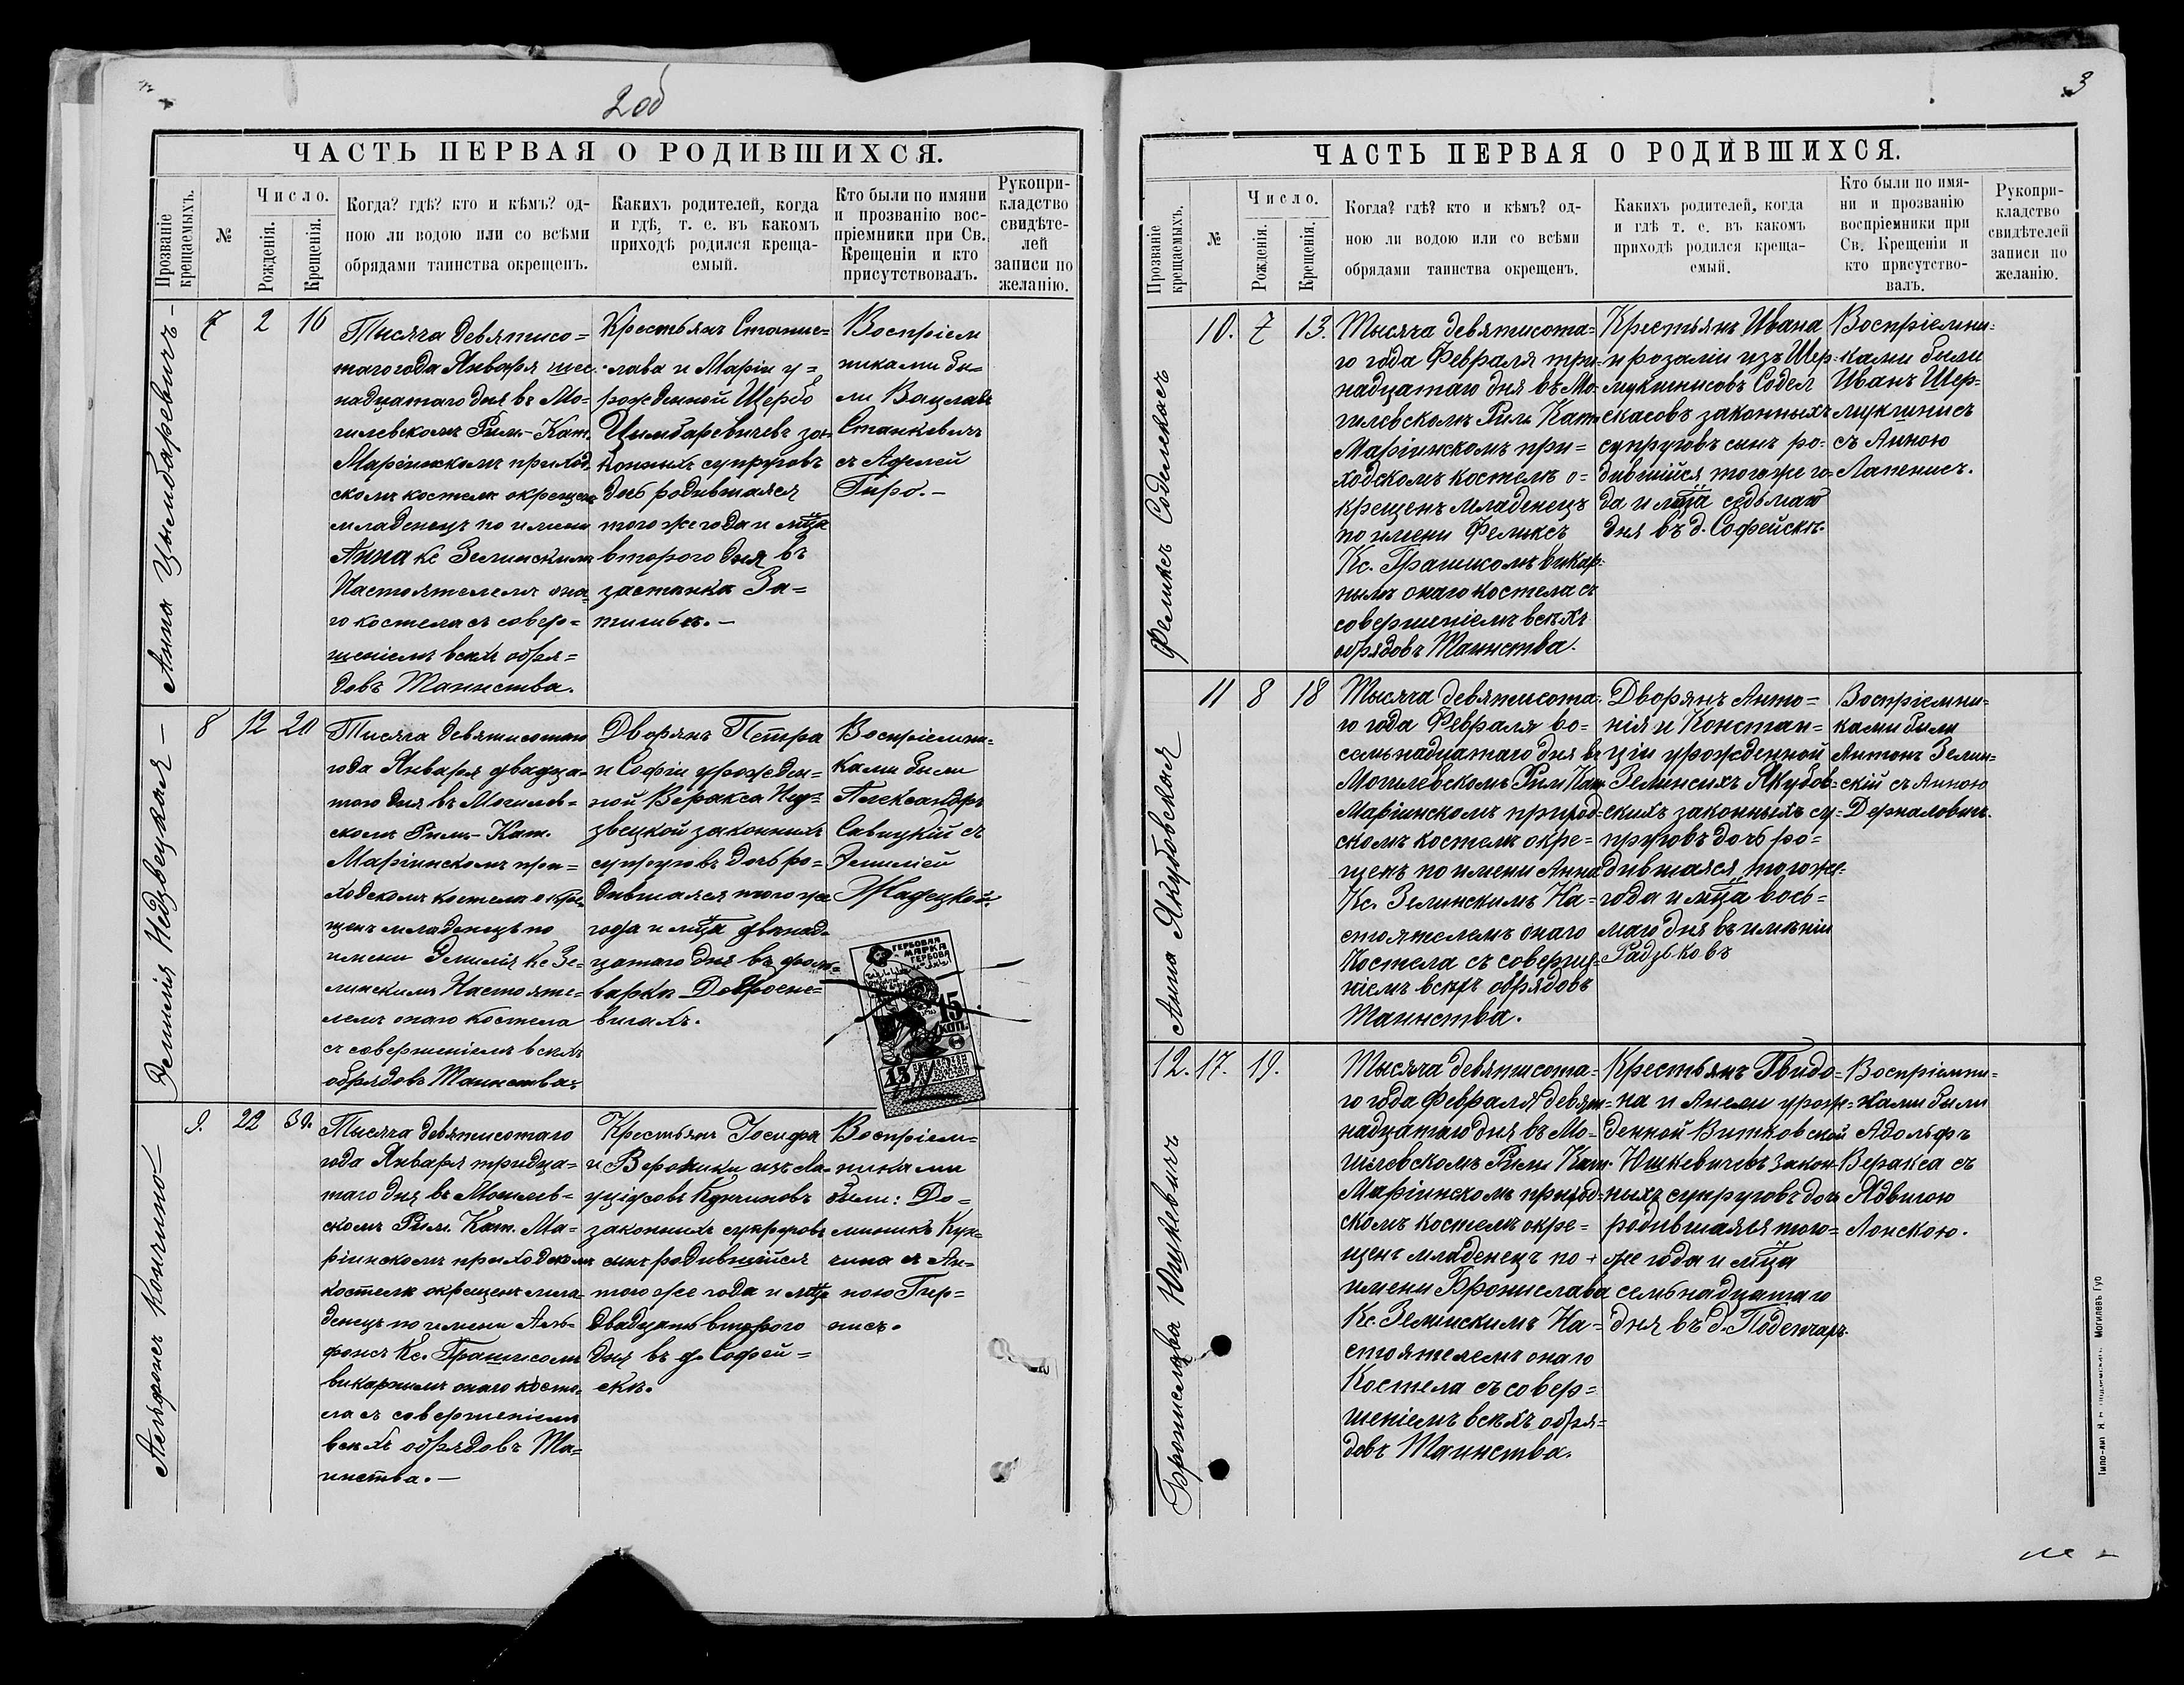 2 об
ЧАСТЬ ПЕРВАЯ О РОДИВШИХСЯ.
Прозваніе крещаемыхъ.
№
Число.
Рожденія.
Крещенія.
Когда? гдѣ? кто и кѣмъ? од-
ною ли водою или со всѣми
обрядами таинства окрещенъ.
Какихъ родителей, когда
и гдѣ, т. е. въ какомъ
приходѣ родился креща-
емый.
Кто были по имяни
и прозванію вос-
пріемники при Св.
Крещеніи и кто
присутствовалъ.
Рукопри-
кладство
свидѣте-
лей
записи по
желанію.
Анна Цымбаревичъ -
7
2
16
Тысяча девятисо=
таго года Января шес
надцатаго дня въ Мо=
гилевскомъ Рим.-Кат.
Маріинскомъ приход
скомъ костелѣ окрещен
младенецъ по имени
Анна Кс Зелинскимъ
Настоятелемъ она
го костела съ совер=
шеніемъ всѣхъ обря=
довъ Таинства.
Крестьянъ Станис=
лава и Маріи у=
рожденной Щербо
Цымбаревичевъ за=
конныхъ супруговъ
дочь родившаяся
того же года и мца
втораго дня въ
застѣнкѣ За=
тишьѣ. -
Воспріем
никами бы=
ли Вацлавъ
Станкевичъ
съ Аделей
Гиро. -
Эмилія Недзвецкая -
8
12
20
Тысяча девятисотаго
года Января двадца=
таго дня въ Могилев=
скомъ Рим.-Кат.
Маріинскомъ при=
ходскомъ костелѣ окре
щенъ младенецъ по
имени Эмилія Кс Зе=
линскимъ Настояте=
лемъ онаго костела
съ совершеніемъ всѣхъ
обрядовъ Таинства.
Дворянъ Петра
и Софіи урожден=
ной Веракса Нед=
звецкой законныхъ
супруговъ дочь ро=
дившаяся того же
года и мца двѣнад=
цатаго дня въ фоль=
варкѣ Добросне=
вичахъ.
Воспріемни=
ками были
Александръ
Савицкій съ
Эмиліей
Жадецкой.
ГЕРБОВАЯ
МАРКА
15
КОП.
15
Альфонсъ Кончино -
9.
22
30.
Тысяча девятисотаго
года Января тридца=
таго дня въ Могилев=
скомъ Рим. Кат. Ма=
ріинскомъ приходскомъ
костелѣ окрещенъ мла=
денецъ по имени Аль=
фонсъ Кс. Грашисомъ
викарнымъ онаго косте=
ла съ совершеніемъ
всѣхъ обрядовъ Та=
инства. -
Крестьянъ Іосифа
и Вероники изъ Ла=
законныхъ супруговъ
сынъ родившійся
того же года и мца
двадцать втораго
дня въ д. Софей=
скѣ.
Воспріем=
никами
были: До=
миникъ Кун=
чина съ Ан=
ною Гир=
нисъ.
3
ЧАСТЬ ПЕРВАЯ О РОДИВШИХСЯ.
Прозваніе крещаемыхъ.
№
Число.
Рожденія.
Крещенія.
Когда? гдѣ? кто и кѣмъ? од-
ною ли водою или со всѣми
обрядами таинства окрещенъ.
Какихъ родителей, когда
и гдѣ т. е. въ какомъ
приходѣ родился креща-
емый.
Кто были по имя-
ни и прозванію
воспріемники при
Св. Крещеніи и
кто присутство-
валъ.
Рукопри-
кладство
свидѣтелей
записи по
желанію.
Феликсъ Соделскасъ
10.
7
13.
Тысяча девятисота=
го года Февраля три=
надцатаго дня въ Мо=
гилевскомъ Рим Кат
Маріинскомъ при=
ходскомъ костелѣ о=
крещенъ младенецъ
по имени Феликсъ
Кс. Грашисомъ викар
нымъ онаго костела съ
совершеніемъ всѣхъ
обрядовъ Таинства.
Крестьянъ Ивана
и розаліи изъ Шер=
мукшнисовъ Содел
скасовъ законныхъ
супруговъ сынъ ро=
дившійся того же го=
да и мца седьмаго
дня въ д. Софейскѣ.
Воспріемни=
ками были
Иванъ Шер=
мукшнисъ
съ Анною
Лапенисъ.
Анна Якубовская
11
8
18
Тысяча девятисота=
го года Февраля во=
семьнадцатаго дня въ
Могилевскомъ Рим Кат
Маріинскомъ приход=
скомъ костелѣ окре=
щенъ по имени Анна
Кс. Зелинскимъ На=
стоятелемъ онаго
Костела съ соверше=
ніемъ всѣхъ обрядовъ
Таинства.
Дворянъ Анто=
нія и Констан=
ціи урожденной
Зелинскихъ Якубов=
скихъ законныхъ су=
пруговъ дочь ро=
дившаяся того же
года и мца вось=
маго дня въ имѣніи
Радзьковъ
Воспріемни=
ками были
Антонъ Зелин=
скій съ Анною
Дерналовичъ.
Брониславa Юшкевичъ
12.
17.
19.
Тысяча девятисота=
го года Февраля девят=
надцатаго дня въ Мо=
гилевскомъ Рим Кат.
Маріинскомъ приход=
скомъ костелѣ окре=
щенъ младенецъ по
имени Брониславa
Кс. Зелинскимъ На=
стоятелемъ онаго
Костела съ совер=
шеніемъ всѣхъ обря=
довъ Таинства.
Крестьянъ Гвидо=
на и Анели урож=
денной Витковской
Юшкевичевъ закон
ныхъ супруговъ дочь
родившаяся того=
же года и мца
семьнадцатаго
дня въ д.
Воспріемни=
ками были
Адольфъ
Веракса съ
Ядвигою
Лонскою.